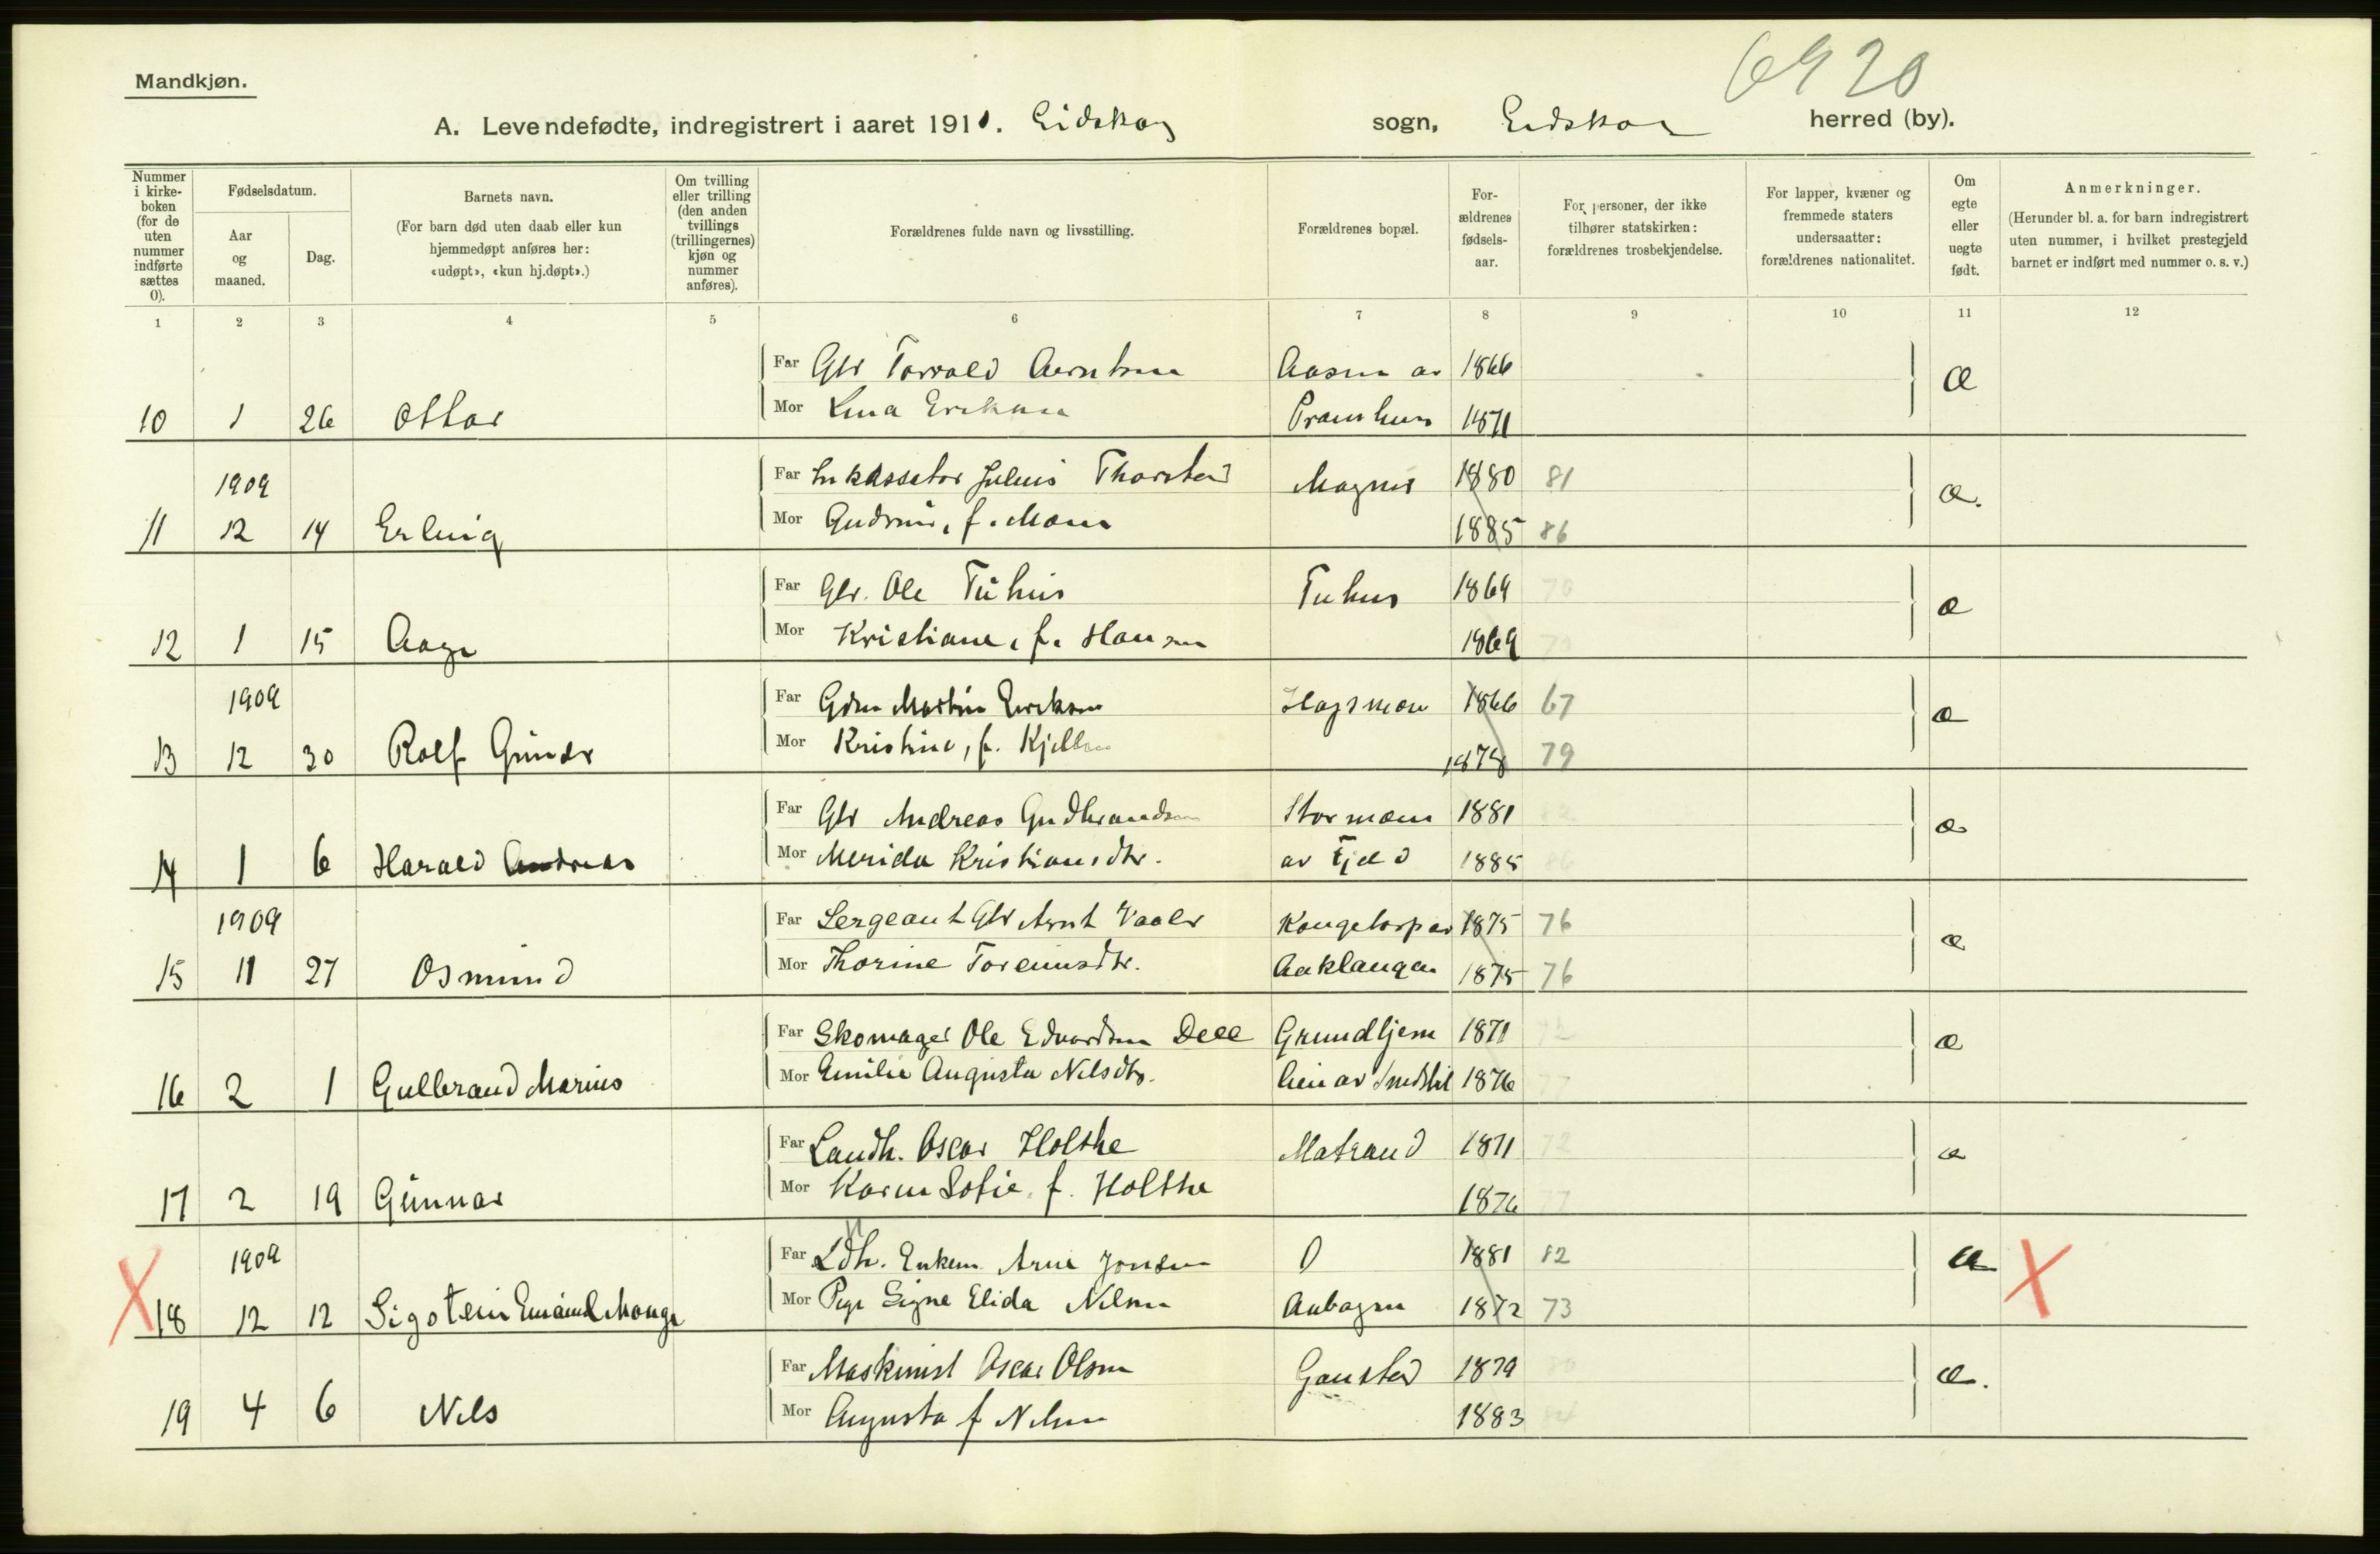 6920
Mandkjøn.
A. Levendefødte, indregistrert i aaret 1910. Eidskog sogn, Eidskog herred (by).
Nummer i kirke- boken (for de uten nummer indførte sættes 0).
Fødselsdatum.
Aar og maaned.
Dag.
Barnets navn.
(For barn død uten daab eller kun hjemmedøpt anføres her: «udøpt», «kun hj.døpt».)
Om tvilling eller trilling (den anden tvillings (trillingernes) kjøn og nummer anføres).
Forældrenes fulde navn og livsstilling.
Forældrenes bopæl.
For- ældrenes fødsels- aar.
For personer, der ikke tilhører statskirken: forældrenes trosbekjendelse.
For lapper, kvæner og fremmede staters undersaatter: forældrenes nationalitet.
Om egte eller uegte født.
Anmerkninger.
(Herunder bl. a. for barn indregistrert uten nummer, i hvilket prestegjeld barnet er indført med nummer o. s. v.)
1 2 3 4 5 6 7 8 9 10 11 12
Far Gbr Torvald Aasen av 1866
Mor Lina Eriksen 1871 æ
10 1 26 Ottar
1909 Far Inkassator Julius Thorstad Magnor 1880 81
Mor Gudrun, f. Moen 1885 86 æ.
11 12 14 Erling
Far Gbr. Ole Tuhus Tuhus 1869 70
Mor Kristiane, f. Hansen 1869 70 æ
12 1 15 Aage
1909 Far Gdm Martin Eriksen 1866 67
Mor Kristine, f. 1878 79 æ
13 12 30 Rolf Gunder
Far Gbr Andreas Gudbrandsen Stormoen 1881 82
Mor Merida Kristiansdtr. av Fjeld 1885 86 æ
14 1 6 Harald Andreas
1909 Far Sergeant Gbr Arnt Vaaler Kongetorp av 1875 76
Mor Thorine Torensdtr. Aaklangen 1875 76 æ
15 11 27 Osmund
Far Skomager Ole Edvardsen Grundtjern 1871 72
Mor Emilie Augusta Nilsdtr. 1876 77 æ
16 2 1 Gulbrand Marius
Far Landh. Oscar Holthe Matrand 1871 72
Mor Karen Sofie, f. Holthe 1876 77 æ
17 2 19 Gunnar
1909 Far Ldh. Enkem. Arne Jonsen 0 1881 82
Mor Pige Signe Elida Nilsen Aabogen 1872 73 u X
X 18 12 12 Sigstein Emanuel Monge
Far Maskinist Oscar Olsen Gaustad 1879 80
Mor Augusta f Nilsen 1883 84 æ.
19 4 6 Nils